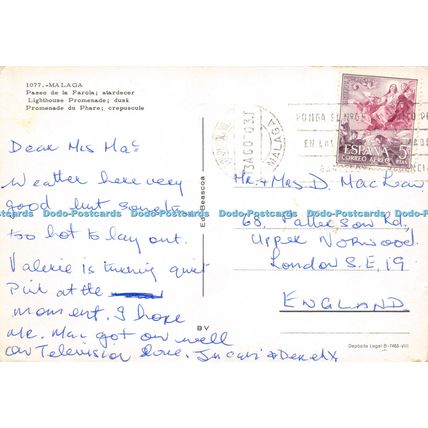 1077.-MALAGA
Paseo de la Farola; atardecer
Lighthouse Promenade; dusk
Promenade du Phare; crepuscule
Dear Mrs Mac
Weather here very
good but
too hot to lay out.
Valerie is turning quiet
Pink at the
moment. I hope
Mr. Mac got on well
on Television love. & Derek X
BV
MALAGA
ESPAÑA
CORREO AEREO
5
Mr. + Mrs D. MacLean
68, Patterson Rd,
Upper Norwood
London S.E.19
ENGLAND
Depósito Legal B-7465-VIII
Dodo-Postcards Dodo-Postcards Dodo-Postcards Dodo-Postcards Dodo-Postcards